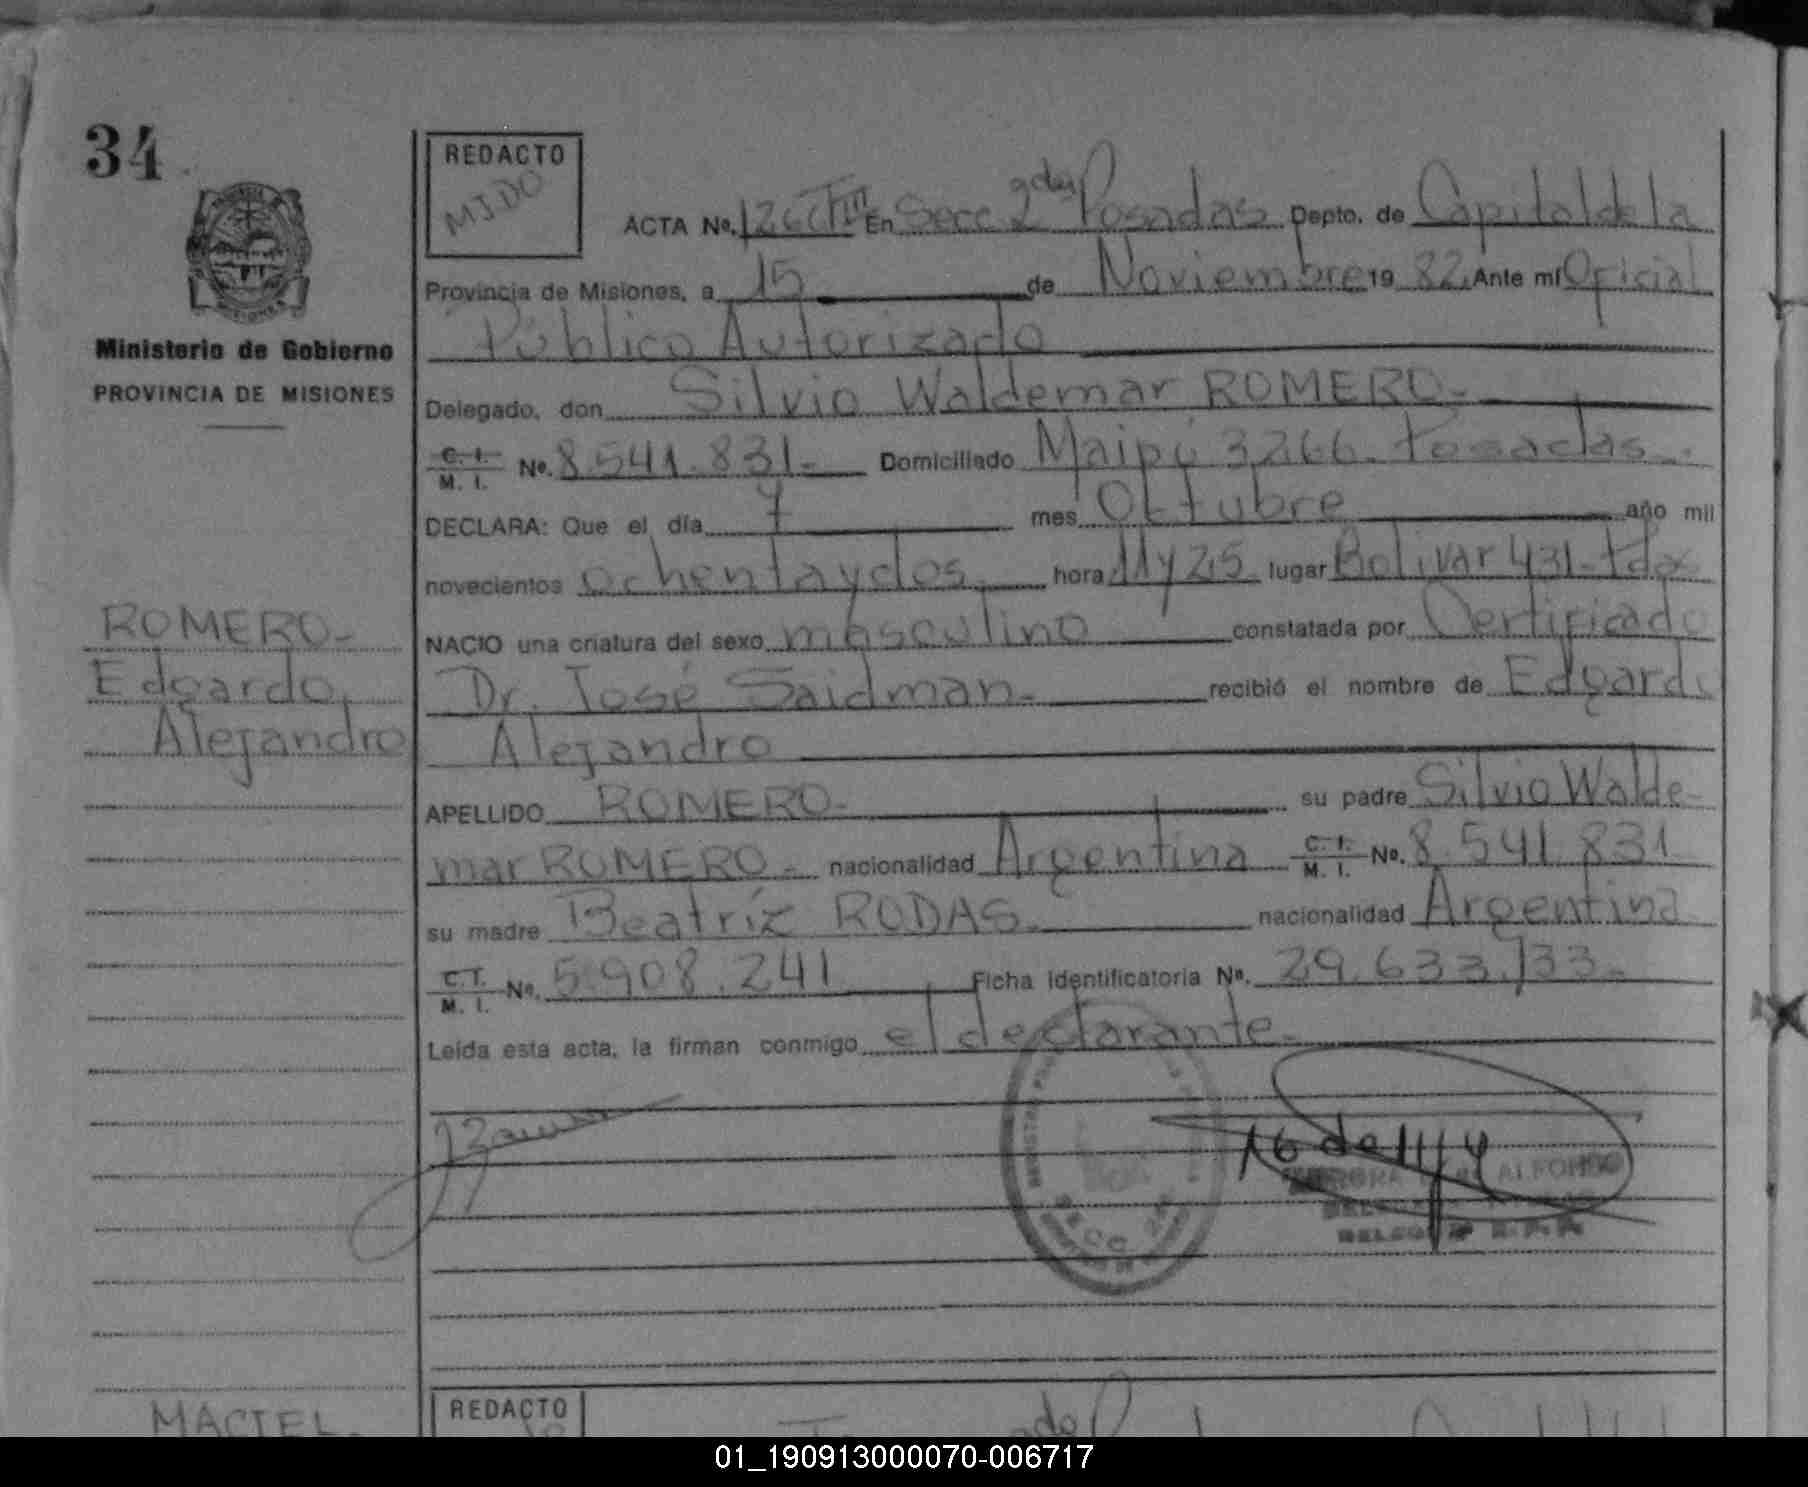 34
REDACTO
MIDO
ACTA No. 126 TIII En Secc 2da Posadas Depto. de Capital de la
Provincia de Misiones, a 15 de Noviembre 19 82. Ante mí Oficial
Público Autorizado
Ministerio de Gobierno
PROVINCIA DE MISIONES
Delegado, don Silvio Waldemar ROMERO.-
C. I. M. I. No. 8.541.831.- Domiciliado Maipú 3266. Posadas.-
DECLARA: Que el día 7 mes Octubre año mil
novecientos ochentaydos. hora 11y25. lugar Bolivar 431- Pdas
NACIO una criatura del sexo masculino constatada por Certificado
Dr. José Saidman.- recibió el nombre de Edgardo
Alejandro
ROMERO-
Edgardo
Alejandro
APELLIDO ROMERO- su padre Silvio Walde-
mar ROMERO.- nacionalidad Argentina C. I. M. I. No. 8.541.831
su madre Beatríz RODAS.- nacionalidad Argentina
C. I. M. I. No. 5.908.241 Ficha Identificatoria No. 29.633.133-
Leída esta acta, la firman conmigo el declarante.-
SECC
ALFONSO
MACIEL.
REDACTO
01_190913000070-006717